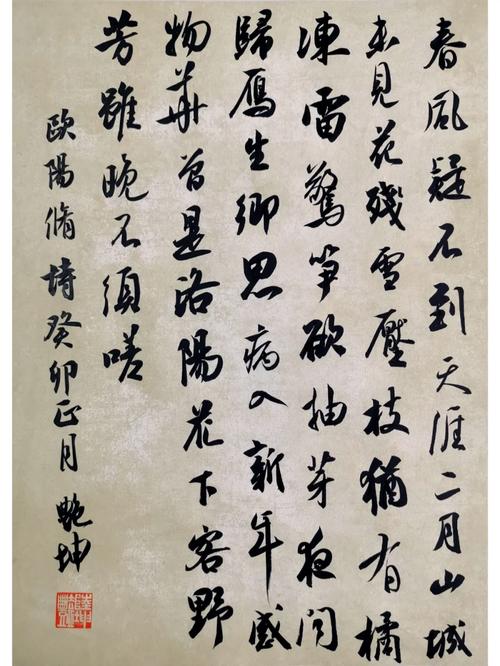 春風疑不到天涯二月山城
未見花殘雪壓枝猶有橘
凍雷驚筍欲抽芽夜聞
歸鴈生鄉思病入新年感
物華曾是洛陽花下客野
芳雖晚不須嗟
歐陽脩詩癸卯正月 坤